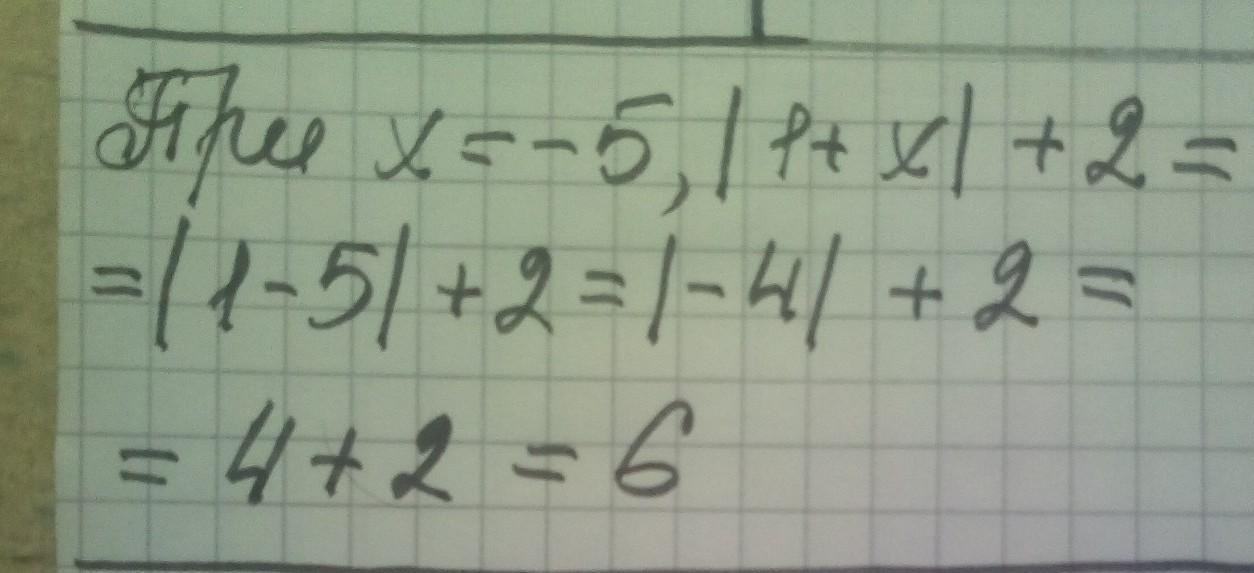 При x = -5, |1+ x| + 2 =
= |1-5| + 2 = |-4| + 2 =
= 4 + 2 = 6